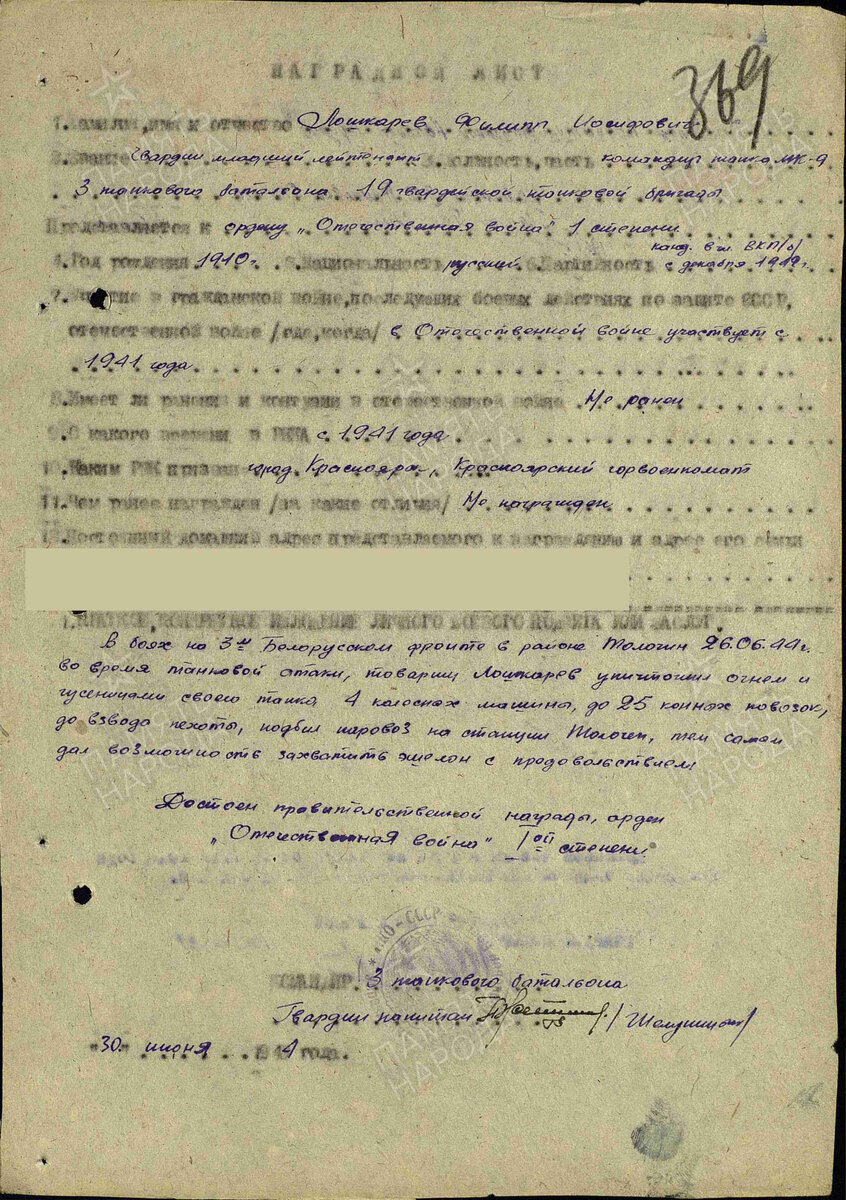 369
НАГРАДНОЙ ЛИСТ
1.Фамилия,имя и отчество Лошкарев Филипп Иосифович
2.Звание Гвардии младший лейтенант 3.Должность,часть командир танка МК-9
3 танкового батальона 19 гвардейской танковой бригады
Представляется к ордену „Отечественная война" 1 степени
канд. в чл. ВКП/б/
4.Год рождения 1910 г. 5.Национальность русский 6.Партийность с декабря 1942 г.
7.Участие в гражданской войне,последующих боевых действиях по защите СССР,
отечественной войне /где,когда/ в Отечественной войне участвует с
1941 года
8.Имеет ли ранения и контузии в отечественной войне Не ранен
9.С какого времени в РККА с 1941 года
10.Каким РВК призван град Красноярск, Красноярский горвоенкомат
11.Чем ранее награжден /за какие отличия/ Не награжден
12.Постоянный домашний адрес представляемого к награждению и адрес его семьи
1.КРАТКОЕ,КОНКРЕТНОЕ ИЗЛОЖЕНИЕ ЛИЧНОГО БОЕВОГО ПОДВИГА ИЛИ ЗАСЛУГ.
В боях на 3м Белорусском фронте в районе Толочин 26.06.44г.
во время танковой атаки, товарищ Лошкарев уничтожил огнем и
гусеницами своего танка 4 колесных машины, до 25 конных повозок,
до взвода пехоты, подбил паровоз на станции Толочен, тем самым
дал возможность захватить эшелон с продовольствием
Достоен правительственной награды, орден
„Отечественная война" 1ой степени.
НКО-СССР
КОМАНДИР 3 танкового батальона
Гвардии капитан
"30" июня 1944 года.
ПАМЯТЬ НАРОДА